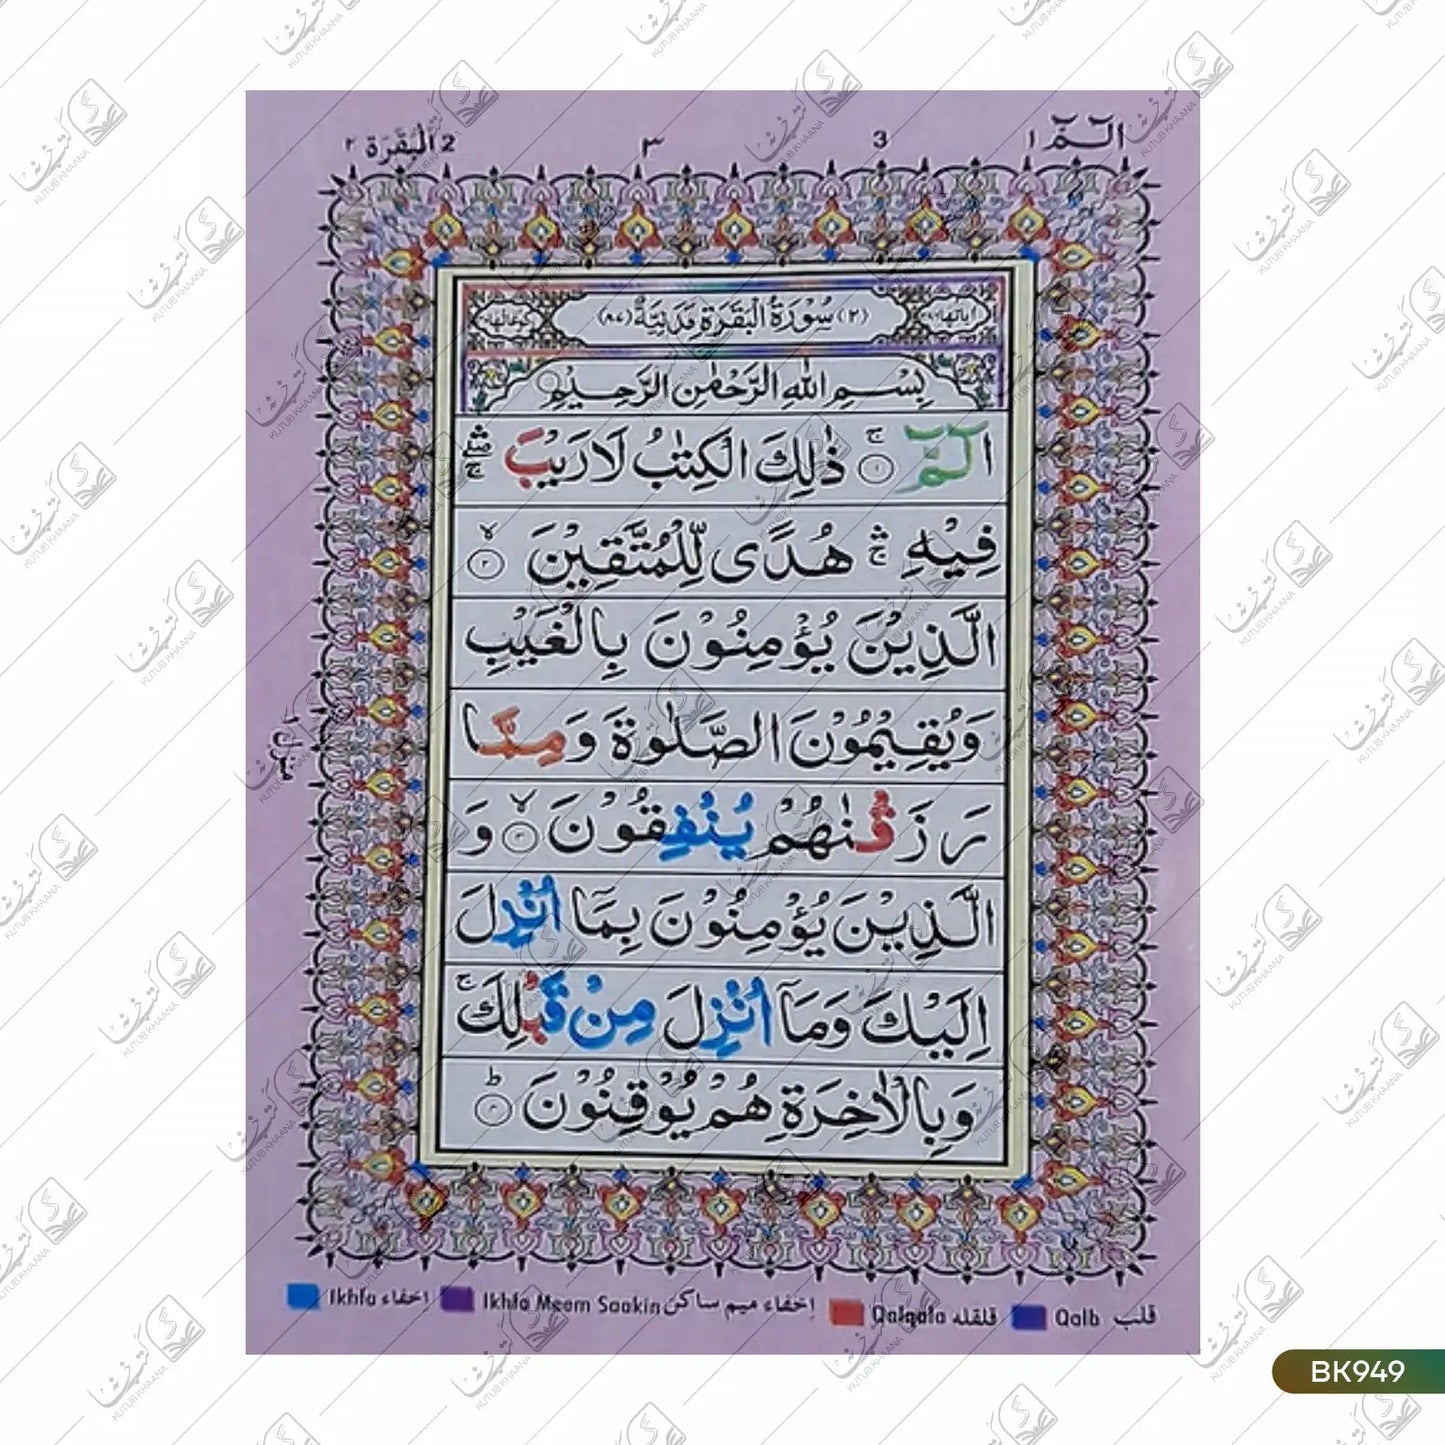 الٓمّٓ ١ 3 ٣ 2 اَلْبَقَرَة ٢
(٢) سُوْرَةُ الْبَقَرَةِ مَدَنِيَّةٌ (٨٧)
بِسْمِ اللّٰهِ الرَّحْمٰنِ الرَّحِيْمِ
الٓمّٓ ۚ ١ ذٰلِكَ الْكِتٰبُ لَا رَيْبَ ۛۚ
فِيْهِ ۛۚ هُدًى لِّلْمُتَّقِيْنَ ۙ ٢
الَّذِيْنَ يُؤْمِنُوْنَ بِالْغَيْبِ
وَيُقِيْمُوْنَ الصَّلٰوةَ وَمِمَّا
رَزَقْنٰهُمْ يُنْفِقُوْنَ ۙ ٣ وَ
الَّذِيْنَ يُؤْمِنُوْنَ بِمَا اُنْزِلَ
اِلَيْكَ وَمَا اُنْزِلَ مِنْ قَبْلِكَ ۚ
وَبِالْاٰخِرَةِ هُمْ يُوْقِنُوْنَ ؕ ٤
منزل ١
Ikhfa اخفاء Ikhfa Meem Saakin اخفاء ميم ساكن Qalqala قلقله Qalb قلب
BK949
كتب خانه
KUTUB KHAANA